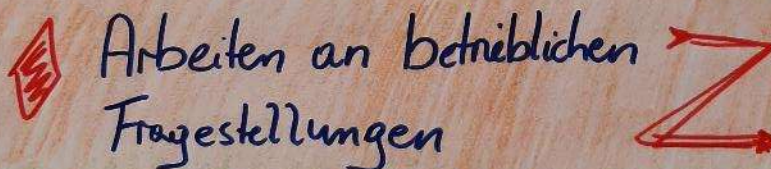 Arbeiten an betrieblichen
Fragestellungen